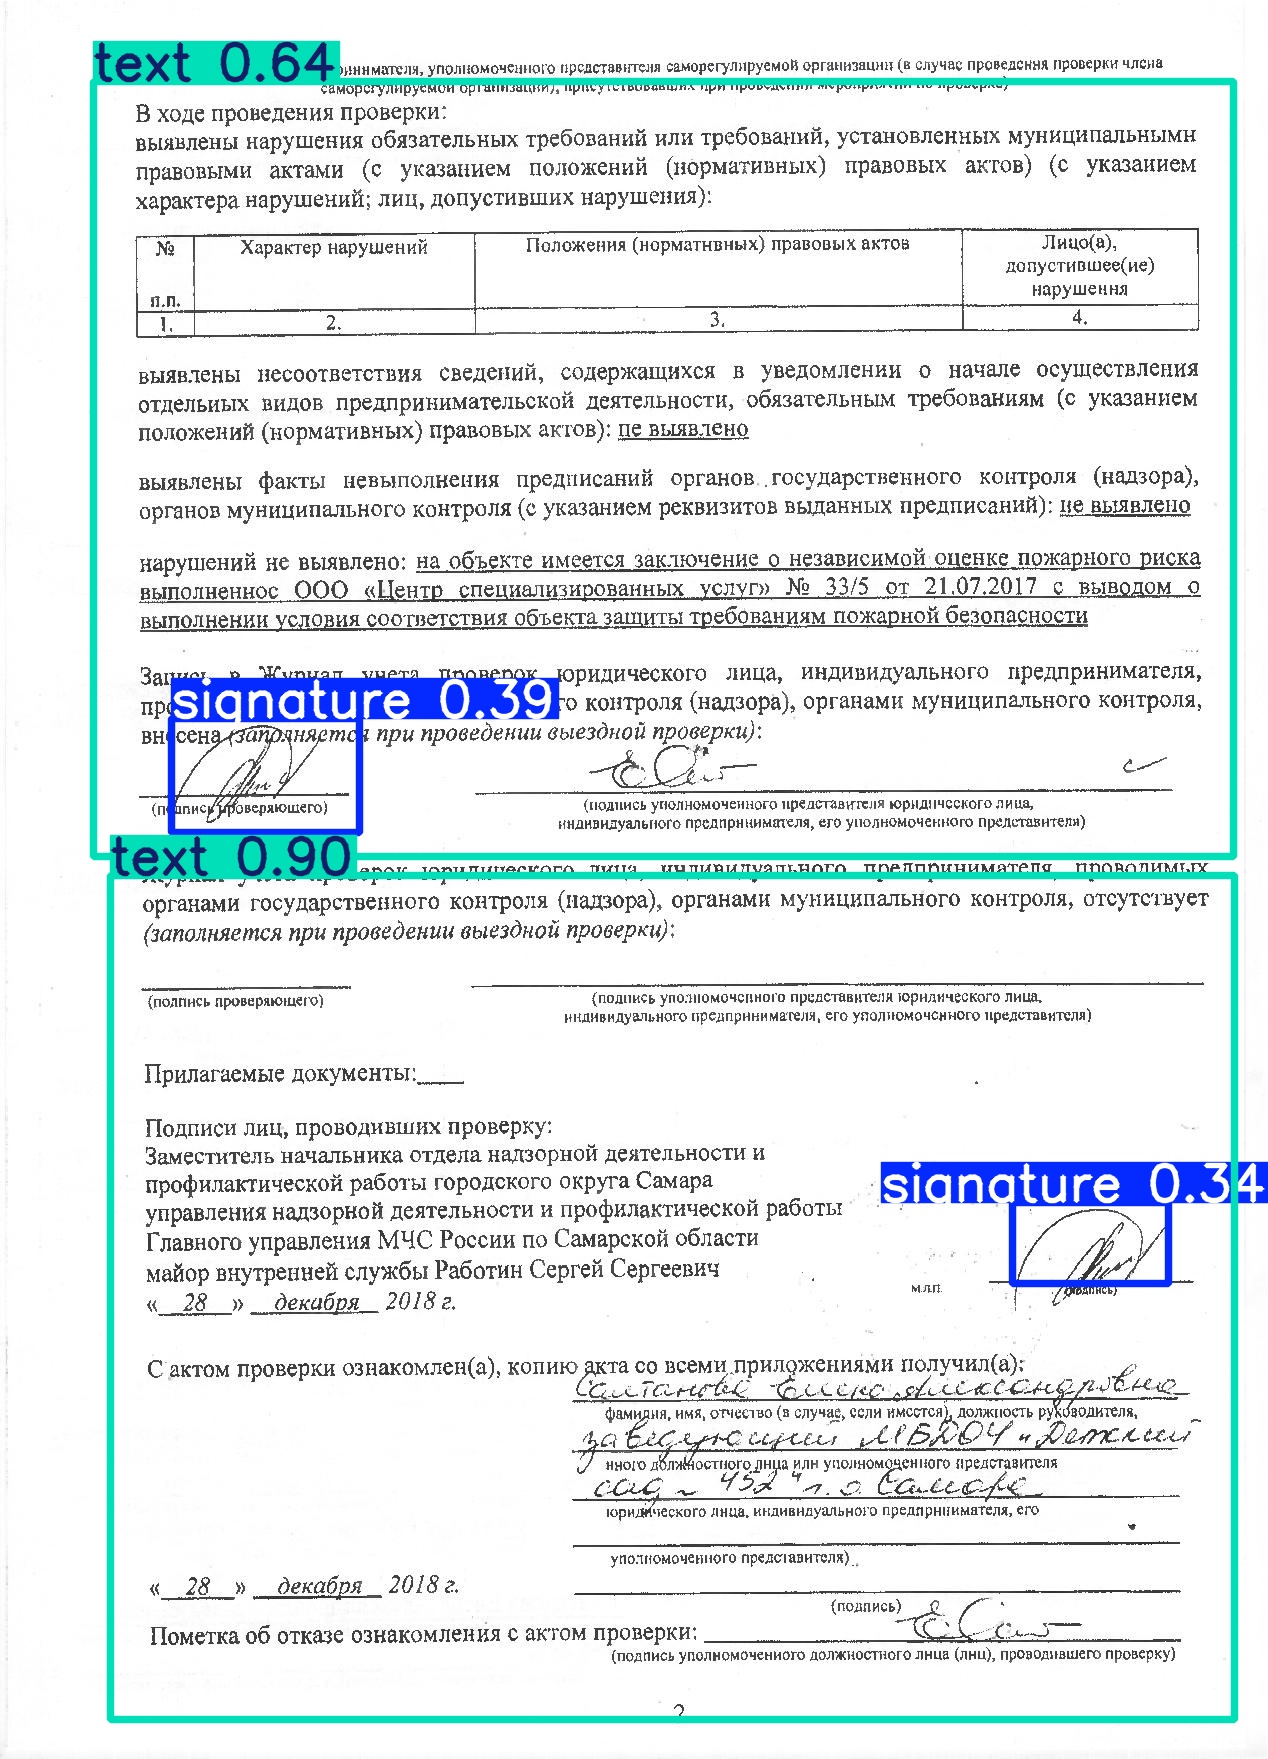 text 0.64
принимателя, уполномоченного представителя саморегулируемой организации (в случае проведения проверки члена
саморегулируемой организации), присутствовавших при проведении мероприятий по проверке)
В ходе проведения проверки:
выявлены нарушения обязательных требований или требований, установленных муниципальными
правовыми актами (с указанием положений (нормативных) правовых актов) (с указанием
характера нарушений; лиц, допустивших нарушения):
№ п.п. Характер нарушений Положения (нормативных) правовых актов Лицо(а), допустившее(ие) нарушения
1. 2. 3. 4.
выявлены несоответствия сведений, содержащихся в уведомлении о начале осуществления
отдельных видов предпринимательской деятельности, обязательным требованиям (с указанием
положений (нормативных) правовых актов): не выявлено
выявлены факты невыполнения предписаний органов государственного контроля (надзора),
органов муниципального контроля (с указанием реквизитов выданных предписаний): не выявлено
нарушений не выявлено: на объекте имеется заключение о независимой оценке пожарного риска
выполненное ООО «Центр специализированных услуг» № 33/5 от 21.07.2017 с выводом о
выполнении условия соответствия объекта защиты требованиям пожарной безопасности
Запись в Журнал учета проверок юридического лица, индивидуального предпринимателя,
signature 0.39
контроля (надзора), органами муниципального контроля,
внесена (заполняется при проведении выездной проверки):
(подпись проверяющего) (подпись уполномоченного представителя юридического лица,
индивидуального предпринимателя, его уполномоченного представителя)
text 0.90
Журнал учета проверок юридического лица, индивидуального предпринимателя, проводимых
органами государственного контроля (надзора), органами муниципального контроля, отсутствует
(заполняется при проведении выездной проверки):
(подпись проверяющего) (подпись уполномоченного представителя юридического лица,
индивидуального предпринимателя, его уполномоченного представителя)
Прилагаемые документы:____
Подписи лиц, проводивших проверку:
Заместитель начальника отдела надзорной деятельности и
профилактической работы городского округа Самара
signature 0.34
управления надзорной деятельности и профилактической работы
Главного управления МЧС России по Самарской области
майор внутренней службы Работин Сергей Сергеевич
м.л.п. (подпись)
« 28 » декабря 2018 г.
С актом проверки ознакомлен(а), копию акта со всеми приложениями получил(а):
Салтанова Елена Александровна
фамилия, имя, отчество (в случае, если имеется), должность руководителя,
заведующий МБДОУ «Детский
иного должностного лица или уполномоченного представителя
сад № 452" г. о. Самара
юридического лица, индивидуального предпринимателя, его
уполномоченного представителя)
« 28 » декабря 2018 г.
(подпись)
Пометка об отказе ознакомления с актом проверки:
(подпись уполномоченного должностного лица (лиц), проводившего проверку)
2